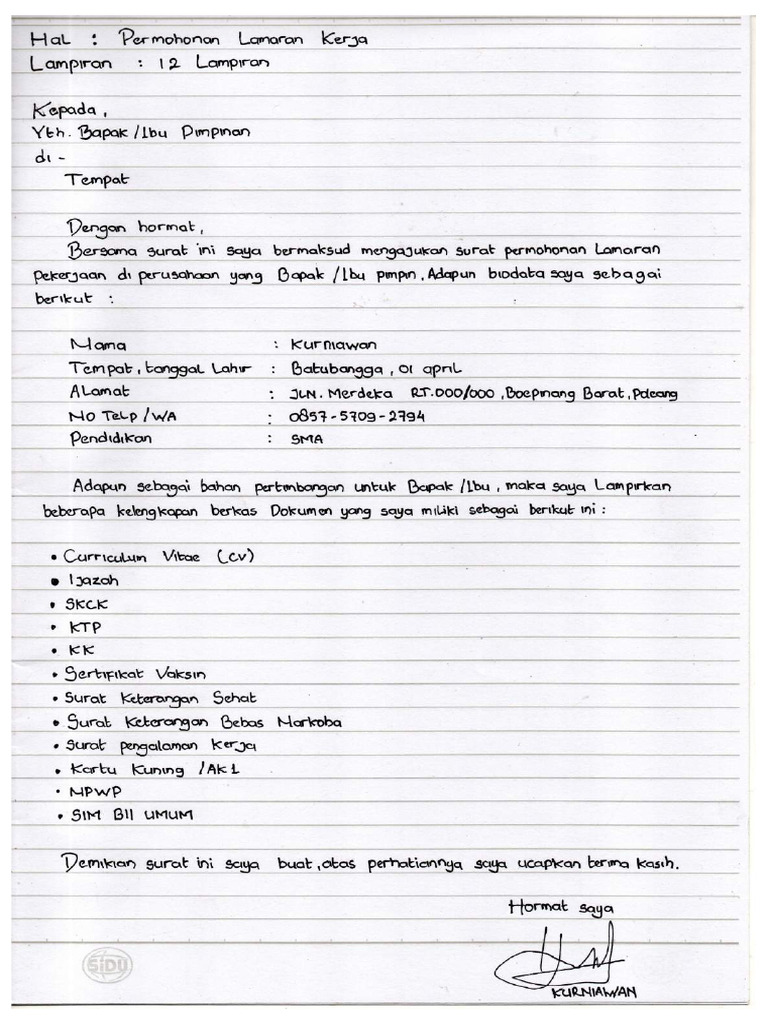 Hal : Permohonan Lamaran Kerja
Lampiran : 12 Lampiran
Kepada,
Yth. Bapak/Ibu Pimpinan
di -
Tempat
Dengan hormat,
Bersama surat ini saya bermaksud mengajukan surat permohonan Lamaran
pekerjaan di perusahaan yang Bapak/Ibu pimpin, Adapun biodata saya sebagai
berikut :
Nama : Kurniawan
Tempat, tanggal Lahir : Batubangga, 01 april
Alamat : JLN. Merdeka RT.000/000, Boepinang Barat, Poleang
No Telp/WA : 0857-5709-2794
Pendidikan : SMA
Adapun sebagai bahan pertimbangan untuk Bapak/Ibu, maka saya Lampirkan
beberapa kelengkapan berkas Dokumen yang saya miliki sebagai berikut ini :
• Curriculum Vitae (CV)
• Ijazah
• SKCK
• KTP
• KK
• Sertifikat Vaksin
• Surat Keterangan Sehat
• Surat Keterangan Bebas Narkoba
• Surat pengalaman Kerja
• Kartu Kuning /AK1
• NPWP
• SIM BII UMUM
Demikian surat ini saya buat, atas perhatiannya saya ucapkan terima kasih.
Hormat saya
SiDU
KURNIAWAN